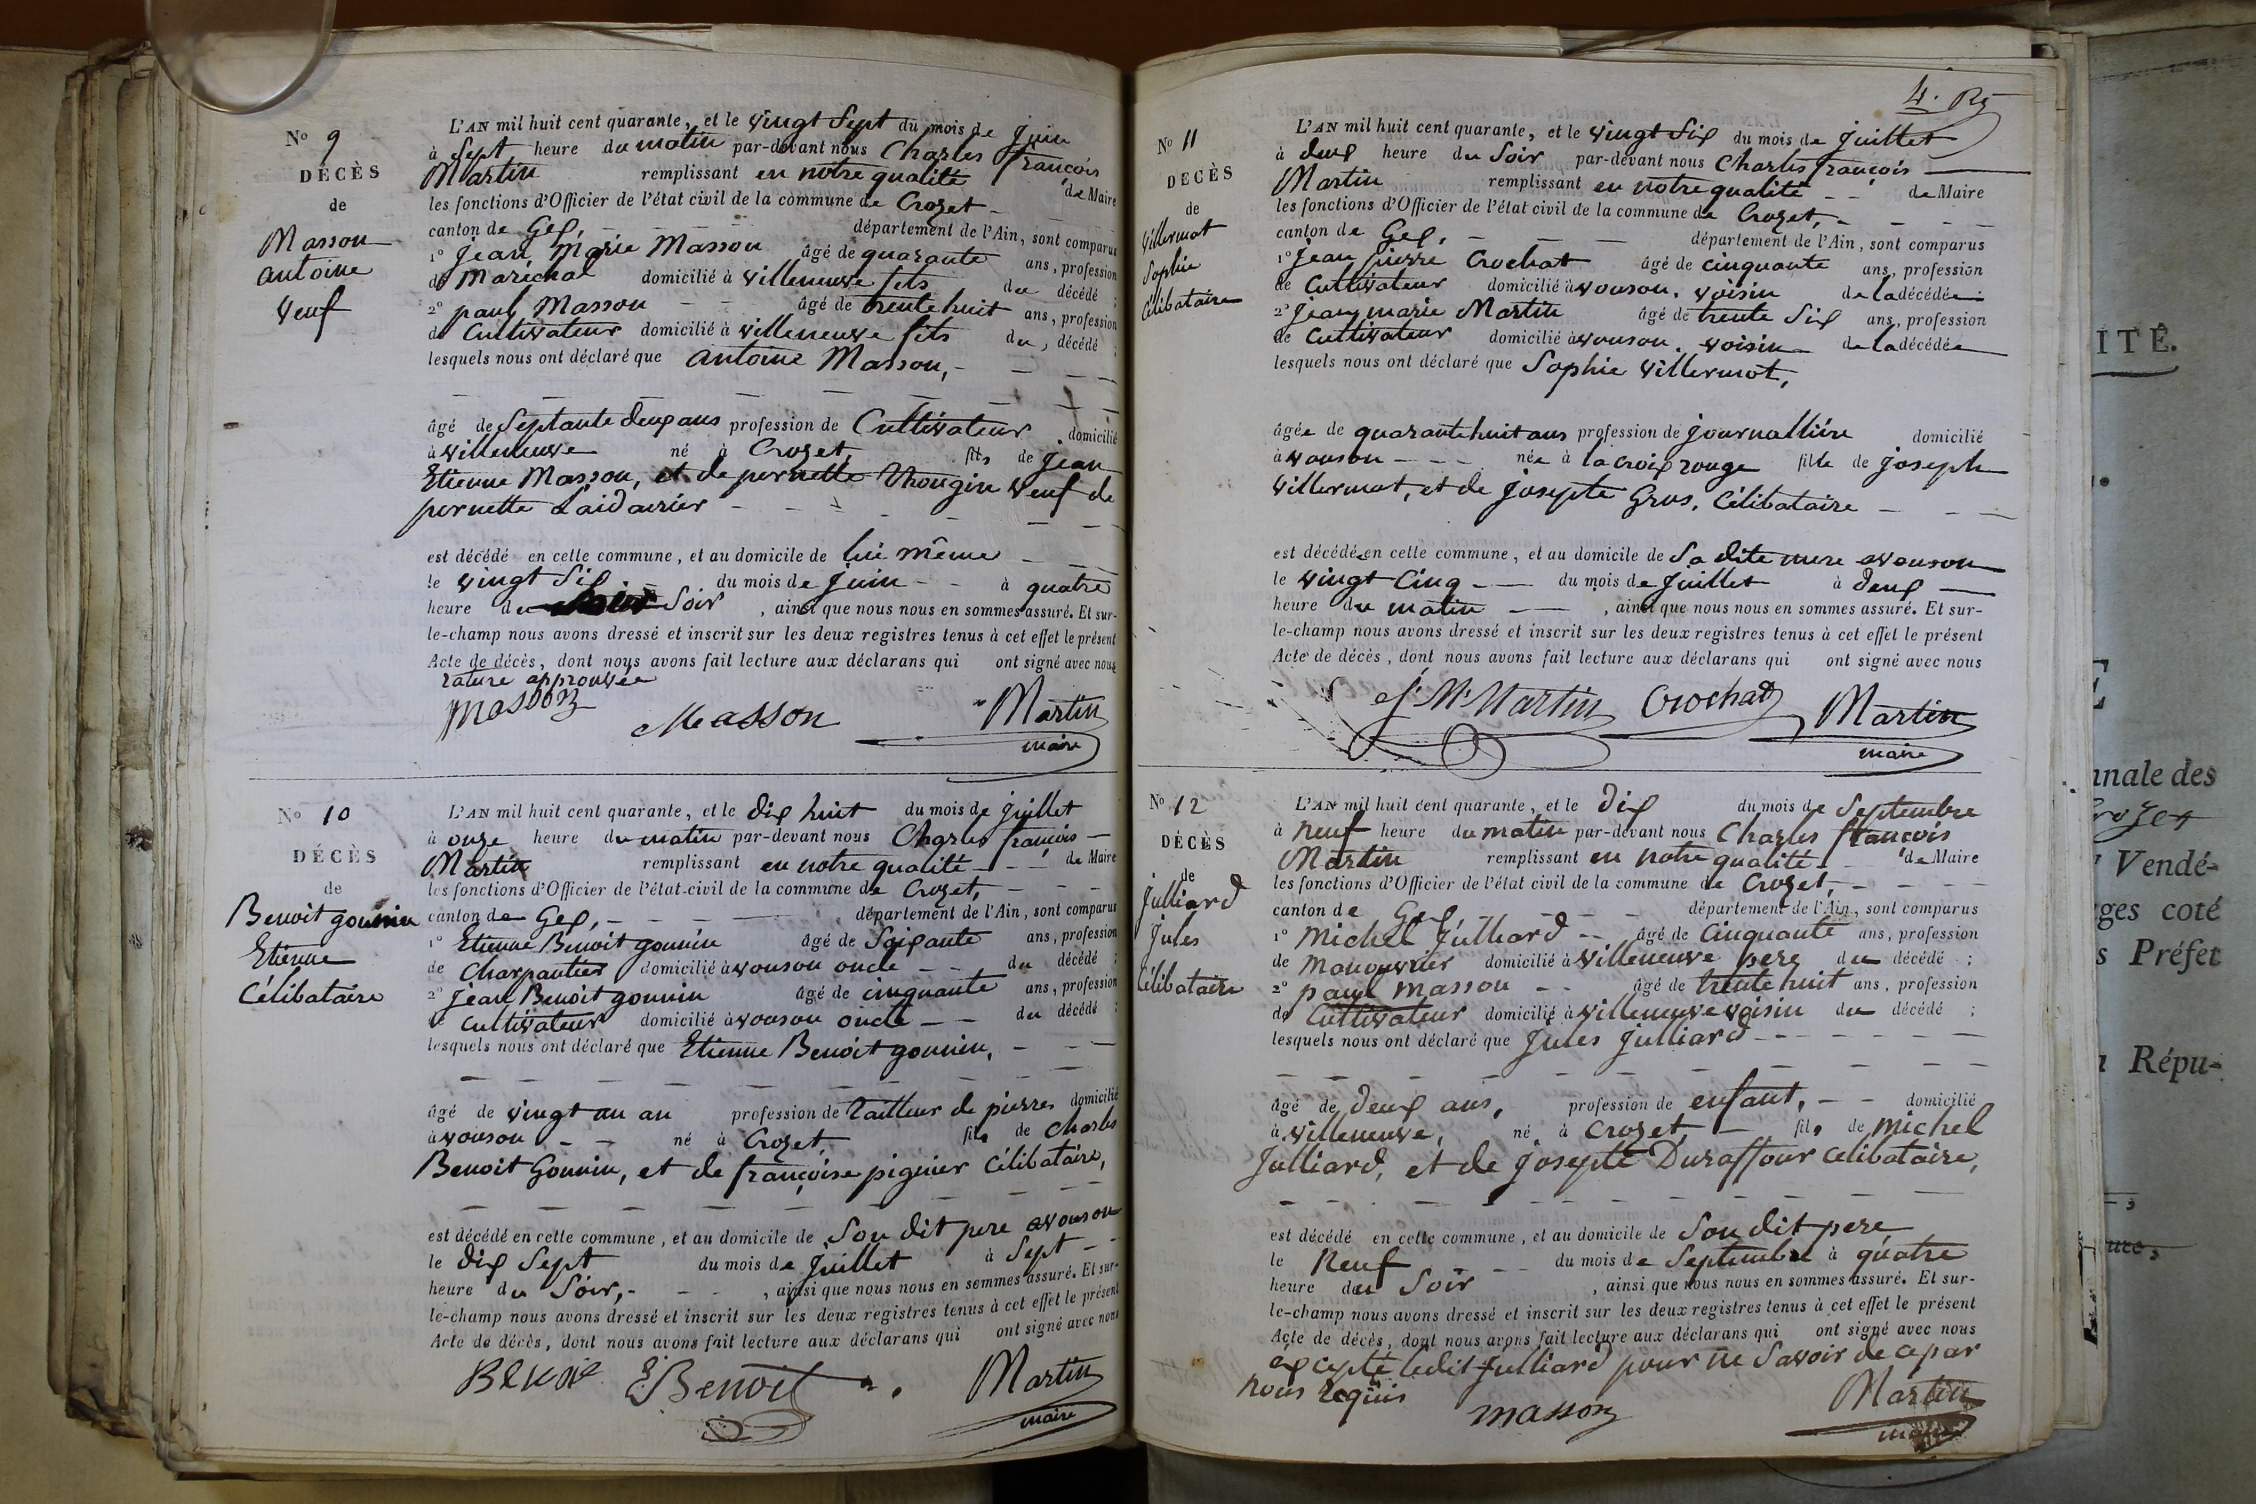 N° 9
DÉCÈS
de
Masson
antoine
veuf
L'AN mil huit cent quarante, et le vingt sept du mois de juin
à sept heure du matin par-devant nous Charles françois
Martin remplissant en notre qualité de Maire
les fonctions d'Officier de l'état civil de la commune de Crozet
canton de Gex, département de l'Ain, sont comparus
1° jean Marie Masson âgé de quarante ans, profession
de Maréchal domicilié à villeneuve fils du décédé ;
2° paul Masson âgé de trente huit ans, profession
de Cultivateur domicilié à villeneuve fils du décédé ;
lesquels nous ont déclaré que antoine Masson,
âgé de septante deux ans profession de Cultivateur domicilié
à villeneuve né à Crozet, fils de jean
Etienne Masson, et de pernette veuf de
pernette
est décédé en cette commune, et au domicile de lui même
le vingt six du mois de juin à quatre
heure du soir, ainsi que nous nous en sommes assuré. Et sur-
le-champ nous avons dressé et inscrit sur les deux registres tenus à cet effet le présent
Acte de décès, dont nous avons fait lecture aux déclarans qui ont signé avec nous
rature approuvée
Masson Masson Martin
maire
N° 10
DÉCÈS
de
Benoit gounin
Etienne
Célibataire
L'AN mil huit cent quarante, et le dix huit du mois de juillet
à onze heure du matin par-devant nous Charles françois
Martin remplissant en notre qualité de Maire
les fonctions d'Officier de l'état-civil de la commune de Crozet,
canton de Gex, département de l'Ain, sont comparus
1° Etienne Benoit gounin âgé de soixante ans, profession
de Charpantier domicilié à vouson oncle du décédé ;
2° jean Benoit gounin âgé de cinquante ans, profession
de Cultivateur domicilié à vouson oncle du décédé ;
lesquels nous ont déclaré que Etienne Benoit gounin,
âgé de vingt un an profession de tailleur de pierres domicilié
à vouson né à Crozet, fils de Charles
Benoit Gounin, et de françoise piginier Célibataire,
est décédé en cette commune, et au domicile de Son dit pere avouson
le dix Sept du mois de juillet à Sept
heure du Soir, ainsi que nous nous en sommes assuré. Et sur-
le-champ nous avons dressé et inscrit sur les deux registres tenus à cet effet le présent
Acte de décès, dont nous avons fait lecture aux déclarans qui ont signé avec nous
Benoit E Benoit Martin
maire
N° 11
DÉCÈS
de
villermot
Sophie
Célibataire
L'AN mil huit cent quarante, et le vingt six du mois de juillet
à deux heure du Soir par-devant nous Charles françois
Martin remplissant en notre qualité de Maire
les fonctions d'Officier de l'état civil de la commune de Crozet,
canton de Gex, département de l'Ain, sont comparus
1° jean pierre Crochat âgé de cinquante ans, profession
de Cultivateur domicilié à vouson, voisin de la décédée ;
2° jean marie Martin âgé de trente six ans, profession
de Cultivateur domicilié à vouson, voisin de la décédée
lesquels nous ont déclaré que Sophie villermot,
âgée de quarante huit ans profession de journallière domicilié
à vouson née à la croix rouge fille de joseph
villermot, et de josepte Gros, Célibataire
est décédée en cette commune, et au domicile de Sa dite mere avouson
le vingt Cinq du mois de juillet à deux
heure du matin, ainsi que nous nous en sommes assuré. Et sur-
le-champ nous avons dressé et inscrit sur les deux registres tenus à cet effet le présent
Acte de décès, dont nous avons fait lecture aux déclarans qui ont signé avec nous
J. M. Martin Crochat Martin
maire
N° 12
DÉCÈS
de
Julliard
jules
Célibataire
L'AN mil huit cent quarante, et le dix du mois de Septembre
à neuf heure du matin par-devant nous Charles françois
Martin remplissant en notre qualité de Maire
les fonctions d'Officier de l'état civil de la commune de Crozet,
canton de Gex, département de l'Ain, sont comparus
1° Michel Julliard âgé de Cinquante ans, profession
de Manouvrier domicilié à villeneuve pere du décédé ;
2° paul Masson âgé de trente huit ans, profession
de Cultivateur domicilié à villeneuve voisin du décédé ;
lesquels nous ont déclaré que Jules Julliard
âgé de deux ans, profession de enfant, domicilié
à villeneuve, né à Crozet, fils de Michel
Julliard, et de josepte Duraffour Celibataire,
est décédé en cette commune, et au domicile de Son dit pere
le Neuf du mois de Septembre à quatre
heure du Soir, ainsi que nous nous en sommes assuré. Et sur-
le-champ nous avons dressé et inscrit sur les deux registres tenus à cet effet le présent
Acte de décès, dont nous avons fait lecture aux déclarans qui ont signé avec nous
excepté ledit Julliard pour ne Savoir de ce par
nous requis
masson Martin
maire
ITÉ.
nnale des
Vendé-
ges coté
s Préfet
Répu-